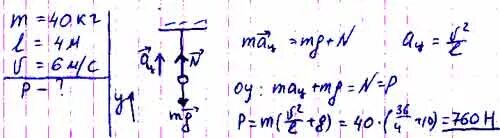 m = 40 кг
l = 4 м
v = 6 м/с
P - ?
a⃗ц
N⃗
mg⃗
y
ma⃗ц = mg + N
aц = v²/l
oy: maц + mg = N = P
P = m(v²/l + g) = 40 · (36/4 + 10) = 760 Н